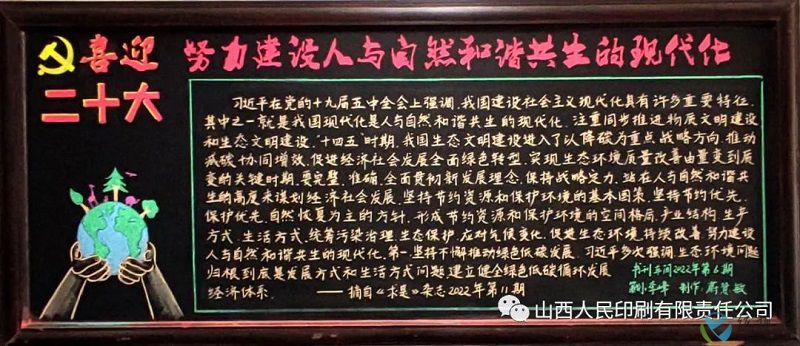 喜迎
二十大
努力建设人与自然和谐共生的现代化
习近平在党的十九届五中全会上强调，我国建设社会主义现代化具有许多重要特征，
其中之一就是我国现代化是人与自然和谐共生的现代化，注重同步推进物质文明建设
和生态文明建设。"十四五"时期，我国生态文明建设进入了以降碳为重点战略方向、推动
减碳协同增效、促进经济社会发展全面绿色转型、实现生态环境质量改善由量变到质
变的关键时期。要完整、准确、全面贯彻新发展理念，保持战略定力，站在人与自然和谐共
生的高度来谋划经济社会发展，坚持节约资源和保护环境的基本国策，坚持节约优先、
保护优先、自然恢复为主的方针，形成节约资源和保护环境的空间格局、产业结构、生产
方式、生活方式，统筹污染治理、生态保护、应对气候变化，促进生态环境持续改善，努力建设
人与自然和谐共生的现代化。第一，坚持不懈推动绿色低碳发展。习近平多次强调，生态环境问题
归根到底是发展方式和生活方式问题，建立健全绿色低碳循环发展
经济体系。 ——摘自《求是》杂志2022年第11期
书刊车间2022年第6期
制作
山西人民印刷有限责任公司